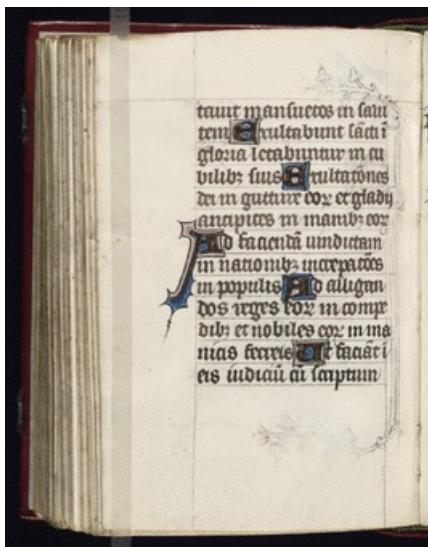 tauit mansuetos in salu
tem Exultabunt sācti ī
gloria letabuntur in cu
bilibꝫ suis Exultatōnes
dei in gutture eoꝝ et gladij
ancipites in manibꝫ eoꝝ
Ad faciendā uindictam
in nationibꝫ increpatōēs
in populis Ad alligan
dos reges eoꝝ in compe
dibꝫ et nobiles eoꝝ in ma
nicis ferreis Ut faciāt ī
eis iudiciū cū scriptum